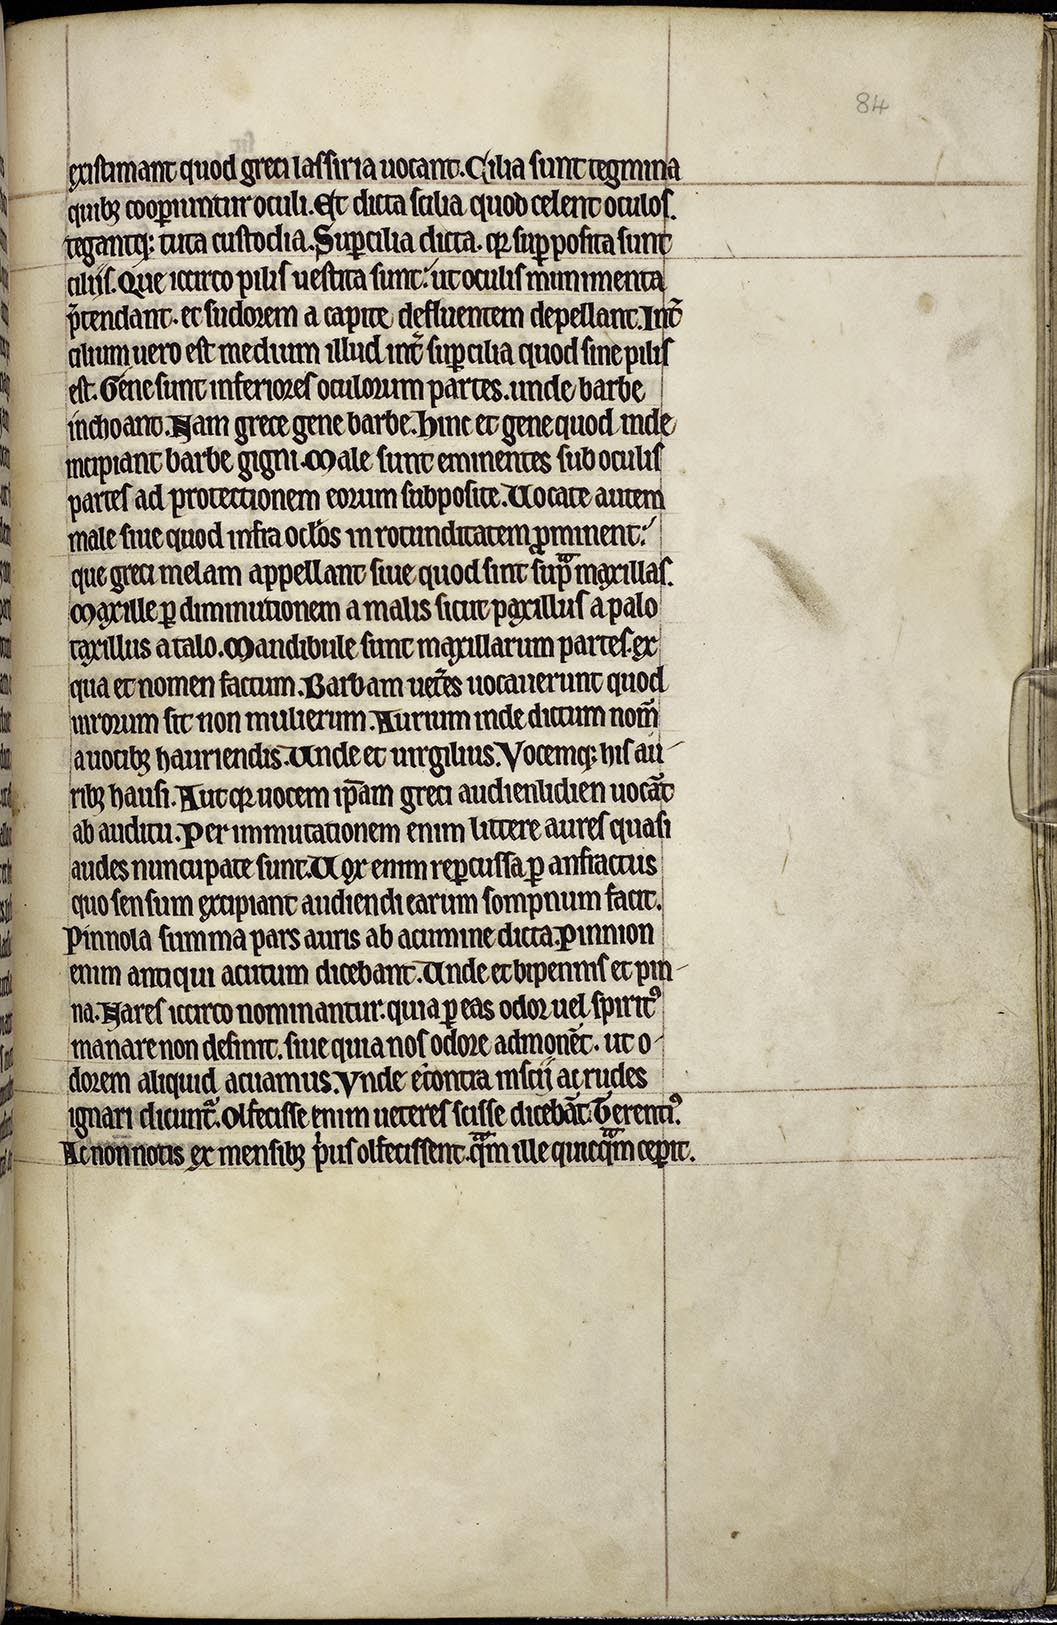 84
existimant quod greci lassiria uocant. Cilia sunt tegmina
quibꝫ coopiuntur oculi. Et dicta scilia quod celent oculos.
tegantqꝫ tuta custodia. Suꝑcilia dicta. qꝛ suꝑposita sunt
ciliis. Que iccirco pilis uestita sunt: ut oculis munimenta
p̃tendant. et sudorem a capite defluentem depellant. Int̃
cilium uero est medium illud int̃ suꝑcilia quod sine pilis
est. Gene sunt inferiores oculorum partes. unde barbe
inchoant. Nam grece gene barbe. hinc et gene quod inde
incipiant barbe gigni. Male sunt eminentes sub oculis
partes ad protectionem eorum subposite. Uocate autem
male siue quod infra oclõs in rotunditatem ꝓminent:
que greci melam appellant siue quod sint sup̃ maxillas.
Maxille ꝑ diminutionem a malis sicut paxillus a palo
taxillus a talo. Mandibule sunt maxillarum partes. ex
qua et nomen factum. Barbam uet̃es uocauerunt quod
uirorum sit non mulierum. Aurium inde dictum nom̃
a uocibꝫ hauriendis. Unde et uirgilius. Vocemqꝫ his au-
ribꝫ hausi. Aut qꝛ uocem ip̃am greci audienlidien uocãt
ab auditu. Per immutationem enim littere aures quasi
audes nuncupate sunt. Uox enim reꝑcussa ꝑ anfractus
quo sensum excipiant audiendi earum sompnum facit.
Pinnola summa pars auris ab acumine dicta. Pinnion
enim antiqui acutum dicebant. Unde et bipennis et pin-
na. Nares iccirco nominantur. quia ꝑ eas odor uel spiritꝰ
manare non desinit. siue quia nos odore admonẽt. ut o-
dorem aliquid acuamus. Vnde econtra inscii ac rudes
ignari dicunt᷑. Olfecisse enim ueteres scisse dicebãt. Terentiꝰ.
Ac non notis ex mensibꝫ pͥus olfecissent. qᷓm ille quicqᷓm ceꝑit.